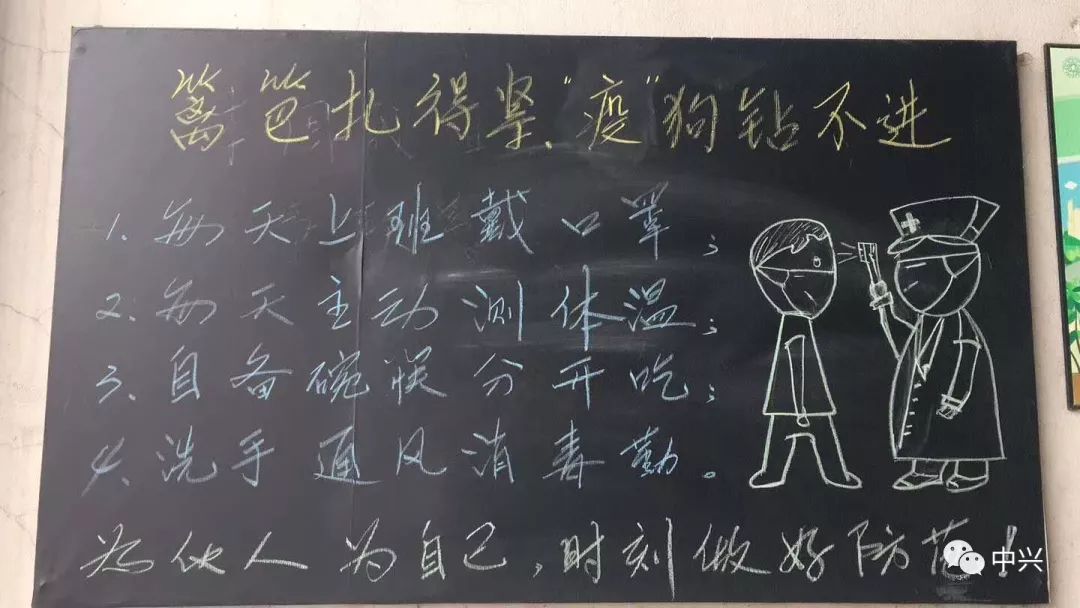 篱笆扎得紧、"疫"狗钻不进
1、每天上班戴口罩；
2、每天主动测体温；
3、自备碗筷分开吃；
4、洗手通风消毒勤。
为伙人为自己，时刻做好防范！
中兴